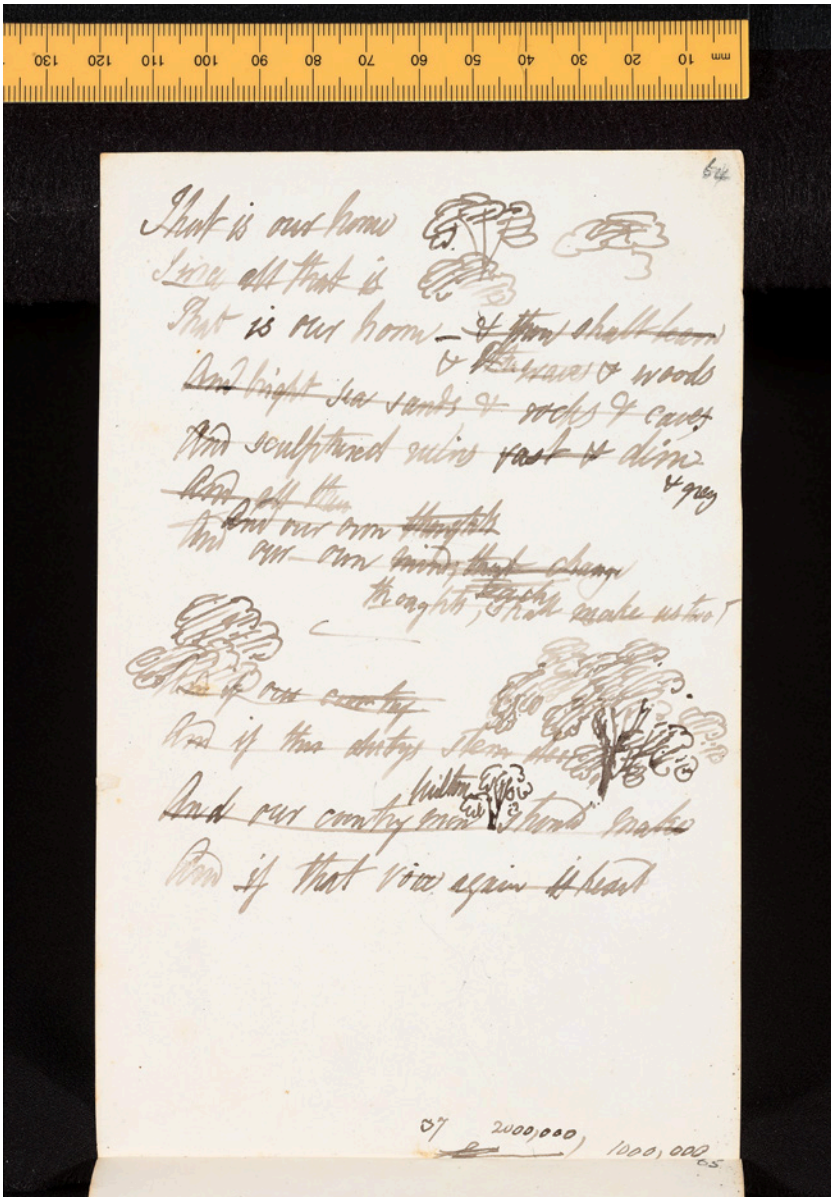 mm 10 20 30 40 50 60 70 80 90 100 110 120 130
54
That is our home
Since all that is
That is our home – & thou shalt learn
& the waves & woods
And bright sea sands & rocks & caves
And sculptured ruins vast & dim
& grey
And all
And our own thoughts
And our own mind, that change
teach
thoughts, shall make us two
if our country
And if this dirtys stern
Milton
And our countrymen should make
And if that voice again is heard
37 2000,000,
1000,000
65